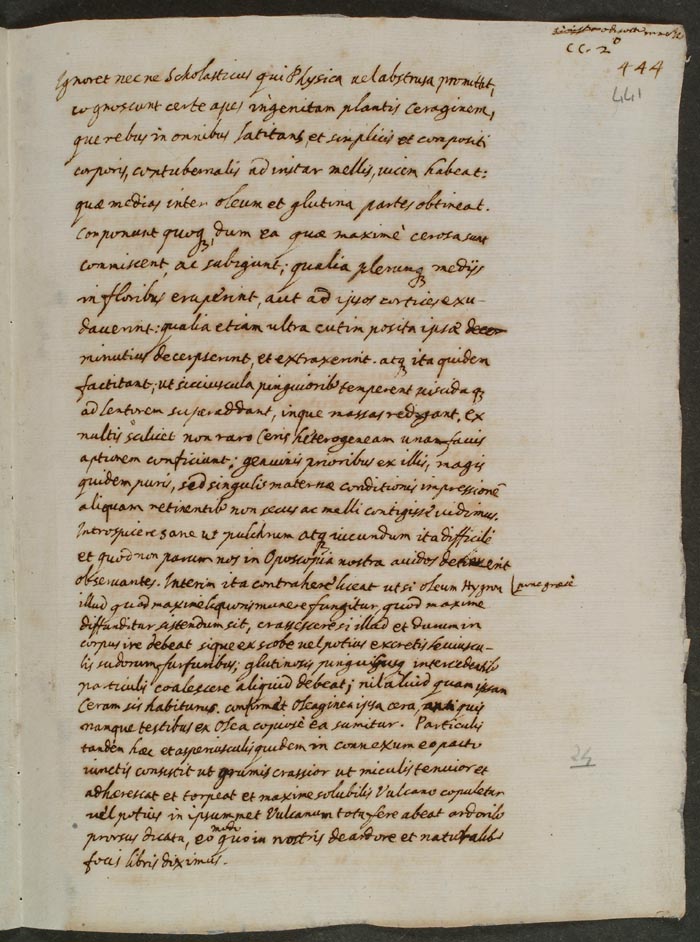 CC. 2
444
441
Ignoret nec ne Scholasticus qui Physica vel abstrusa promittat,
cognoscunt certe apes ingenitam plantis Ceraginem,
quę rebus in omnibus latitans, et simplicis et compositi
corporis, contubernalis ad instar mellis, vicem habeat:
quæ medias inter oleum et glutina partes obtineat.
Componunt quoq, dum ea quæ maximè cerosa sunt
commiscent, ac subigunt; qualia plerunq medijs
in floribus eruperint, aut ad ipsos cortices exu-
daverint: qualia etiam ultra cutim posita ipsæ
minutius decerpserint, et extraxerint. atq ita quidem
factitant, ut sicciuscula pinguiorib temperent viscida q
ad lentorem superaddant, inque massas redigant. ex
multis scilicet non raro Ceris heterogeneam unam favis
aptiorem conficiunt; genuinis prioribus ex illis, magis
quidem puris, sed singulis maternæ conditionis impressionē
aliquam retinentib non secus ac melli contigisse vidimus.
Introspicere sane ut pulchrum atq iucundum ita difficile
et quod non parum nos in Oposcopia nostra avidos
observantes. Interim ita contrahere liceat ut si oleum Hygron pone græcè
illud quod maxime liquoris munere fungitur, quod maxime
diffunditur sistendum sit, crassescere si illud et durum in
corpus ire debeat sique ex scobe vel potius excretis leviuscu-
lis sudorum furfuribus; glutinosis pinguibusq intercedentib
particulis coalescere aliquid debeat; nil aliud quam ipsam
Ceram sis habiturus. confirmat Oleaginea ipsa cera,
namque testibus ex Olea copiosè ea sumitur. Particulis
tandem hæc et asperiusculis quidem in connexum eo pacto
iunctis consistit ut grumis crassior ut miculis tenuior et
adhærescat et torpeat et maxime solubilis Vulcano copuletur
vel potius in ipsummet Vulcanum tota fere abeat ardorib
prorsus dicata, eo modo quo in nostris de ardore et naturalib
focis libris diximus.
24